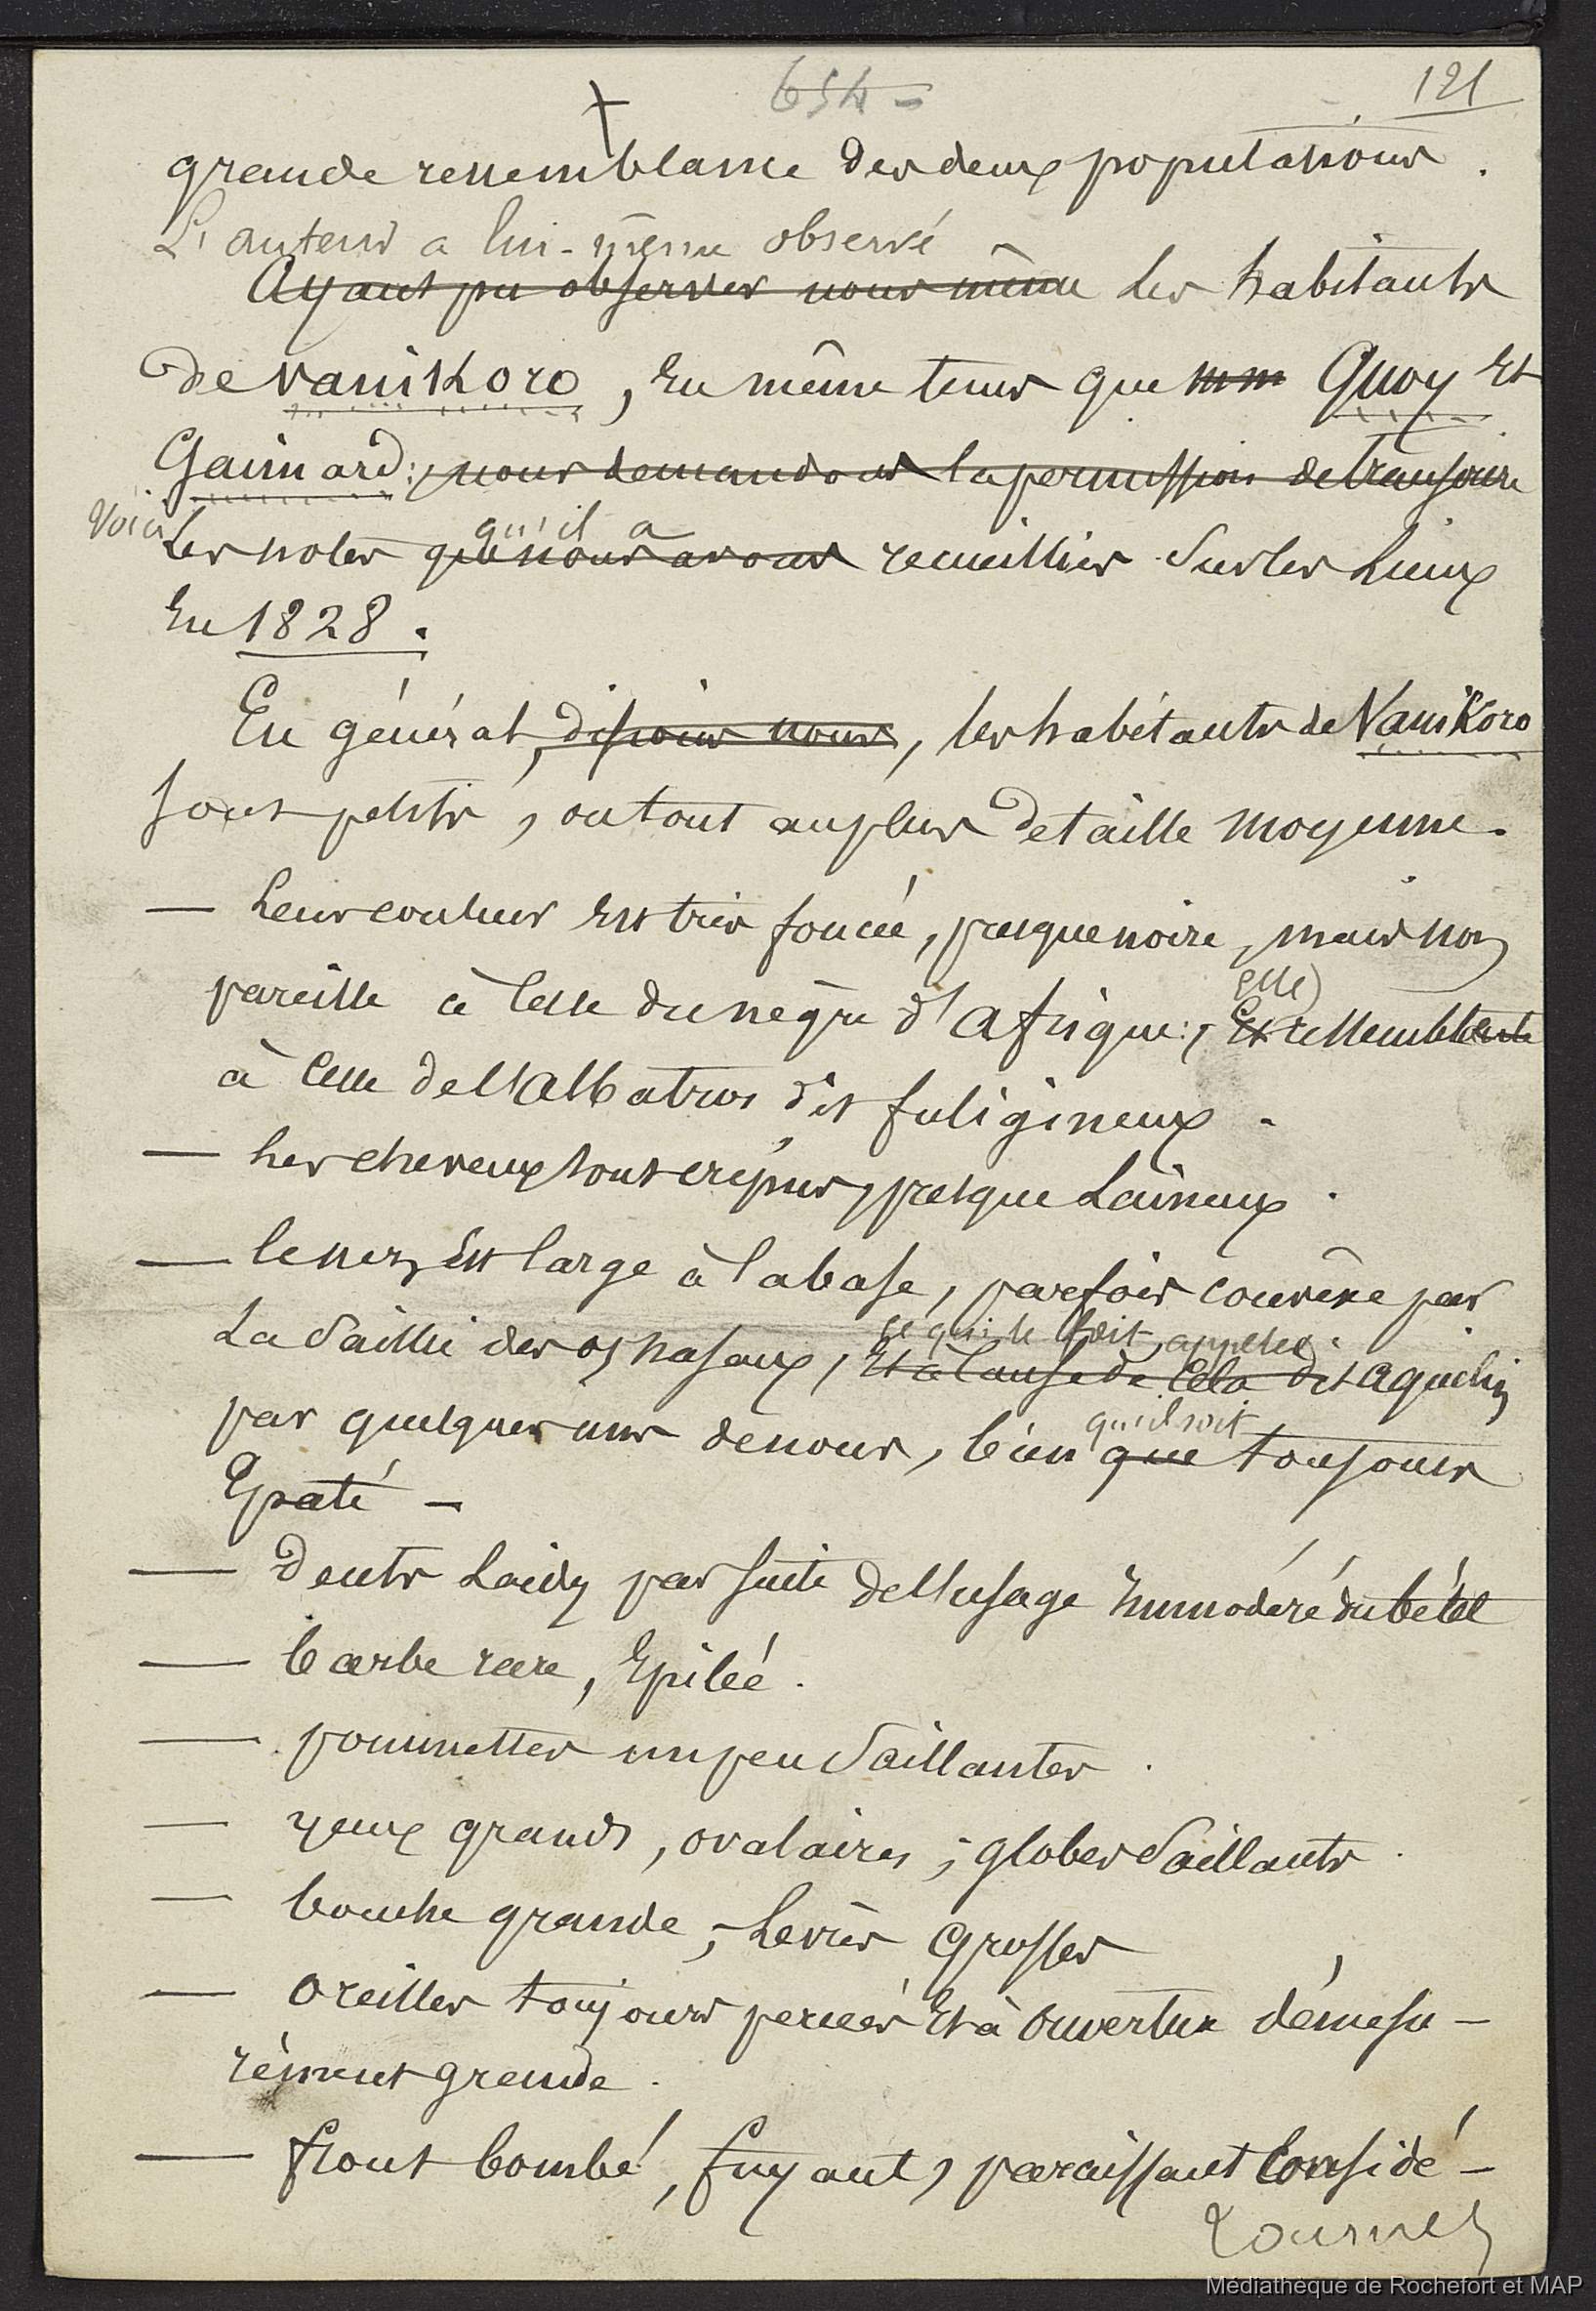 654 -
121
grande ressemblance des deux populations.
L'auteur a lui-même observé
Ayant pu observer nous même les habitants
de Vanikoro, en même tems que mm Quoy et
Gaimard:, nous demandons la permission de transcrire
Voici les notes qu'il a
que nous avons recueillies sur les lieux
en 1828.
En général, disions nous, les habitants de Vanikoro
sont petits, ou tout au plus de taille moyenne.
— Leur couleur est très foncée, presque noire, mais non
elle
pareille à celle du nègre d'Afrique:, Et ressemblante
à celle de l'albatros dit fuligineux.
— les cheveux sont crépus, presque laineux.
— le nez est large à la base, parfois convexe par
ce qui le fait appeler
la saillie des os nasaux, et à cause de cela dit aquilin
qu'il soit
par quelques uns de nous, bien que toujours
Epaté —
— Dents laides par suite de l'usage immodéré du bétel
— barbe rare, Epilée.
— pommettes un peu saillantes.
— yeux grands, ovalaires; globes saillants.
— bouche grande; lèvres grosses
— oreilles toujours percées et à ouverture démesu-
rément grande.
— front bombé, fuyant, paraissant considé-
Tournez
Médiathèque de Rochefort et MAP